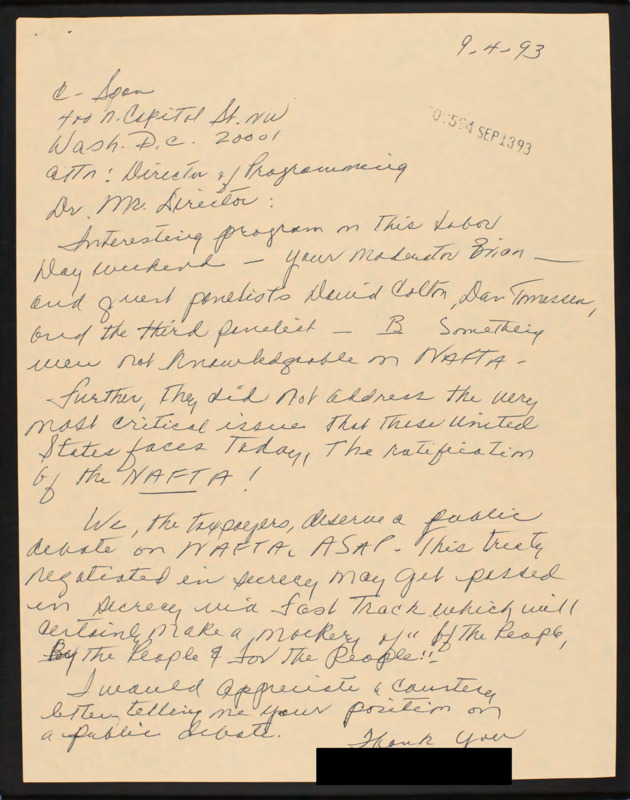 9-4-93
C-Span
400 N. Capitol St. NW
Wash. D.C. 20001
SEP 13 93
attn: Director of Programming
Dr. Mr. Director:
Interesting program on this Labor
Day weekend — your moderator Brian —
and guest panelists David Colton, Dan
and the third panelist — B Something
were not knowledgeable on NAFTA -
Further, they did not address the very
most critical issue that these United
States faces today, The ratification
of the NAFTA!
We, the taxpayers, deserve a public
debate on NAFTA, ASAP. This treaty
negotiated in secrecy may get passed
in secrecy via Fast Track which will
certainly make a mockery of "of the People,
By the People & For the People"!!
I would appreciate a courtesy
letter, telling me your position on
a public debate.
Thank you